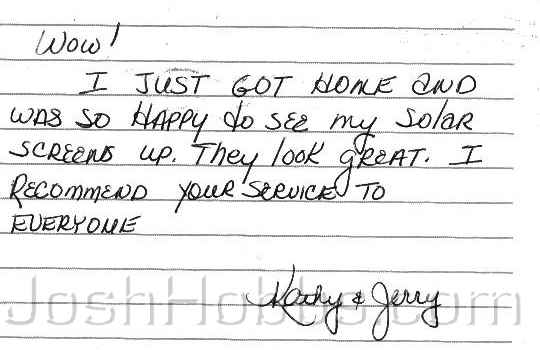 Wow!
I JUST GOT HOME AND
WAS SO HAPPY to SEE my Solar
SCREENS UP. They look GREAT. I
RECOMMEND YOUR SERVICE TO
EVERYONE
Kathy & Jerry
JoshHobbs.com